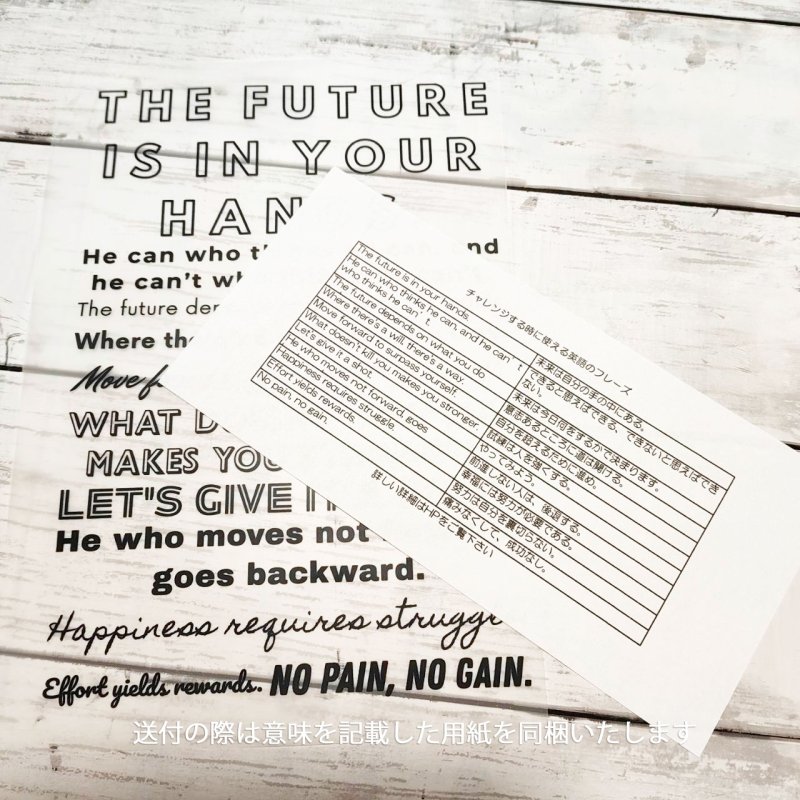 THE FUTURE
IS IN YOUR
He can who
he can't
The future
Where
Move
WHAT
MAKES YOU
LET"S GIVE
He who moves not
goes backward.
Happiness requires
Effort yields rewards. NO PAIN, NO GAIN.
チャレンジする時に使える英語のフレーズ
The future is in your hands.
未来は自分の手の中にある。
He can who thinks he can, and he can't
who thinks he can't
できると思えばできる、できないと思えばでき
ない。
The future depends on what you do
未来は今日何をするかで決まります。
Where there's a will, there's a way.
意志あるところに道は開ける。
Move forward to surpass yourself.
自分を超えるために進め。
What doesn't kill you makes you stronger.
試練は人を強くする。
Let's give it a shot.
やってみよう。
He who moves not forward, goes
前進しない人は、後退する。
Happiness requires struggle.
幸福には努力が必要である。
Effort yields rewards.
努力は自分を裏切らない。
No pain, no gain.
痛みなくして、成功なし。
詳しい詳細はHPをご覧下さい
送付の際は意味を記載した用紙を同梱いたします